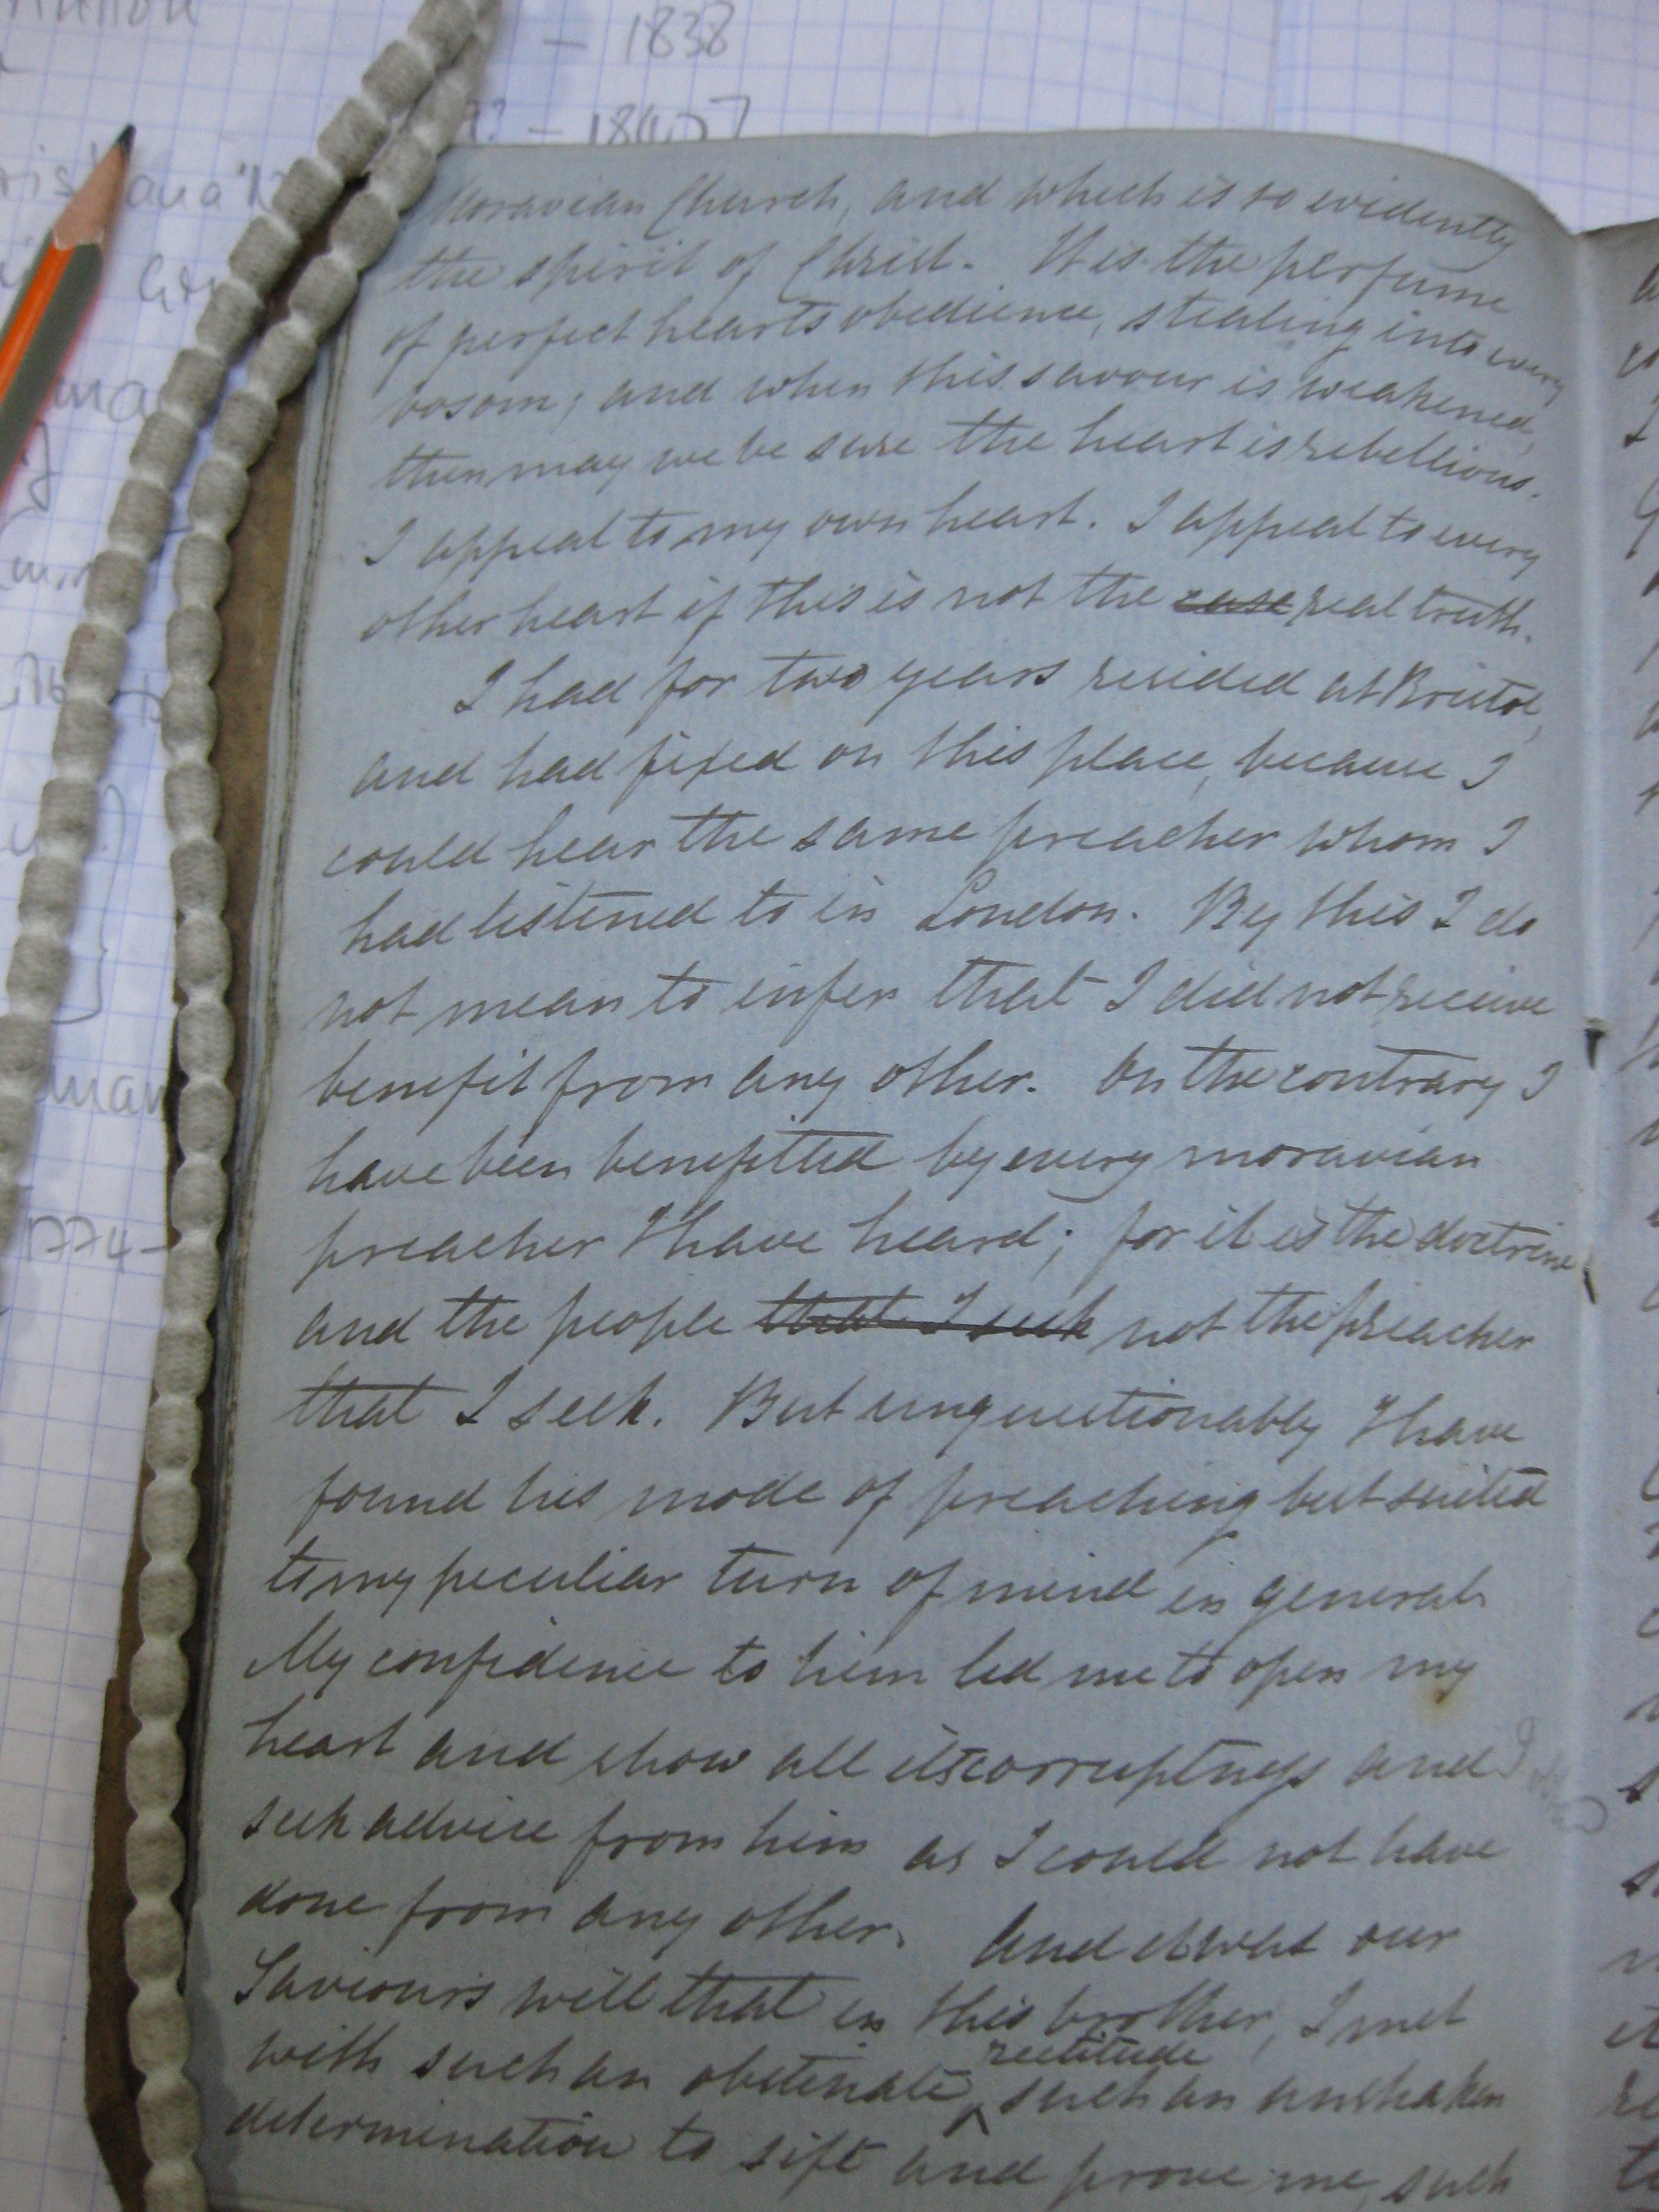 – 1838
Moravian Church, and which is so evidently
the spirit of Christ. It is the perfume
of perfect hearts obedience, stealing into every
bosom; and when this savour is weakened,
then may we be sure the heart is rebellious.
I appeal to my own heart. I appeal to every
other heart if this is not the case real truth.
I had for two years resided at Bristol,
and had fixed on this place, because I
could hear the same preacher whom I
had listened to in London. By this I do
not mean to infer that I did not receive
benefit from any other. On the contrary I
have been benefitted by every moravian
preacher I have heard; for it is the doctrine
and the people that I seek not the preacher
that I seek. But unquestionably I have
found his mode of preaching best suited
to my peculiar turn of mind in general.
My confidence to him led me to open my
heart and show all its corruptings and I
seek advice from him as I could not have
done from any other. And it was our
Saviour's will that in this brother, I met
rectitude
with such an obstinate ^ such an unshaken
determination to sift and prove me, such
1774 –